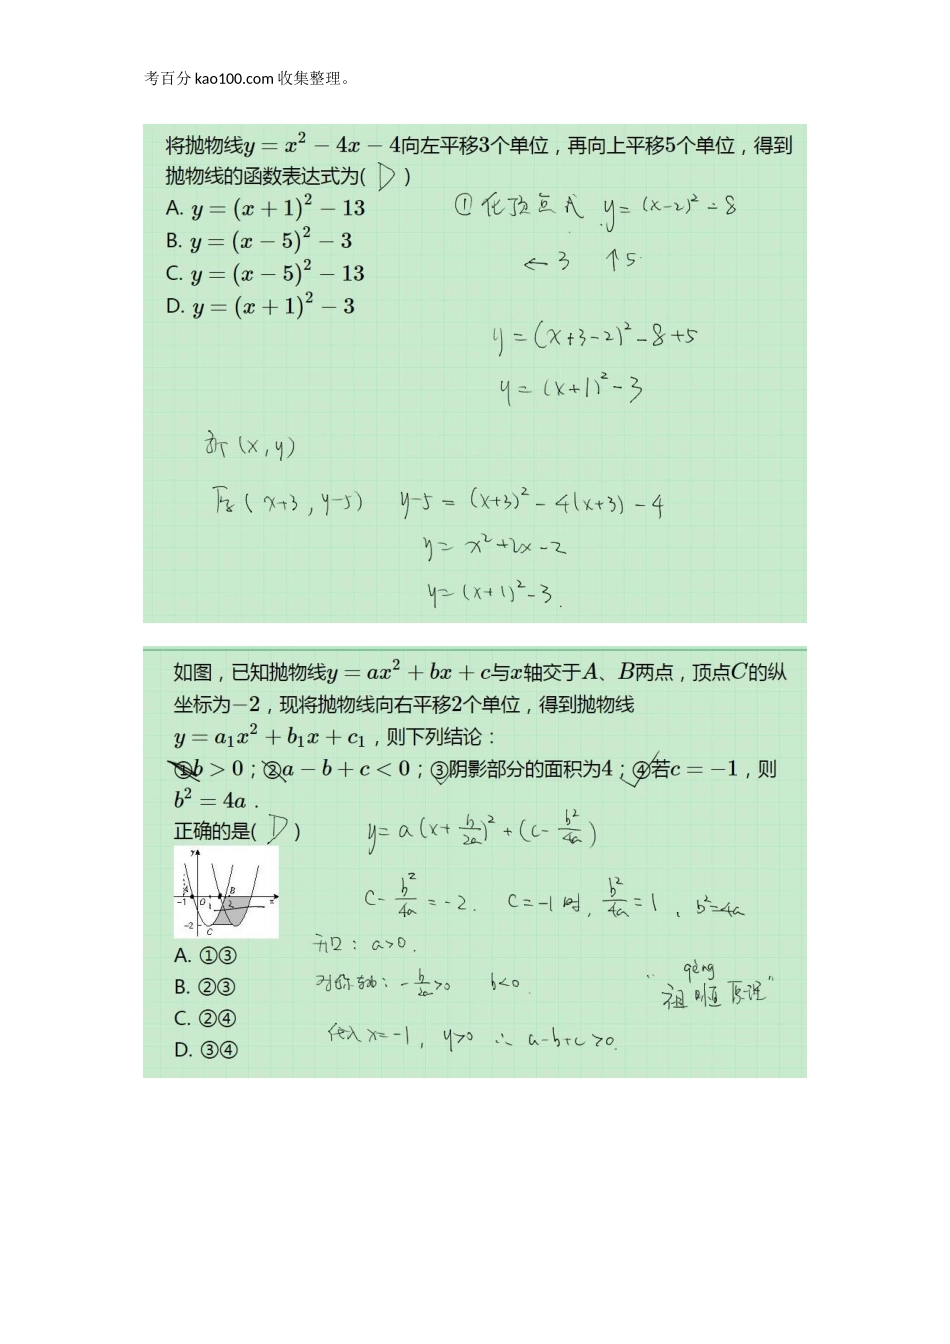 考百分 kao100.com 收集整理。
将抛物线y = x² − 4x − 4向左平移3个单位，再向上平移5个单位，得到
抛物线的函数表达式为( D )
A. y = (x + 1)² − 13
① 化顶点式 y = (x-2)² - 8
B. y = (x − 5)² − 3
← 3 ↑5
C. y = (x − 5)² − 13
D. y = (x + 1)² − 3
y = (x+3-2)² - 8 + 5
y = (x+1)² - 3
新 (x, y)
原 (x+3, y-5) y-5 = (x+3)² - 4(x+3) - 4
y = x²+2x-2
y = (x+1)²-3.
如图，已知抛物线y = ax² + bx + c与x轴交于A、B两点，顶点C的纵
坐标为−2，现将抛物线向右平移2个单位，得到抛物线
y = a₁x² + b₁x + c₁，则下列结论：
①b > 0；②a − b + c < 0；③阴影部分的面积为4；④若c = −1，则
b² = 4a．
正确的是( D )
y = a(x + b/2a)² + (c - b²/4a)
y A B -1 O 1 2 x -2 C
c - b²/4a = -2. c = -1 时, b²/4a = 1, b²=4a
开口: a>0.
A. ①③
对称轴: - b/2a >0 b<0.
B. ②③
gèng
"祖暅原理"
C. ②④
代入 x=-1, y>0 ∴ a-b+c>0.
D. ③④